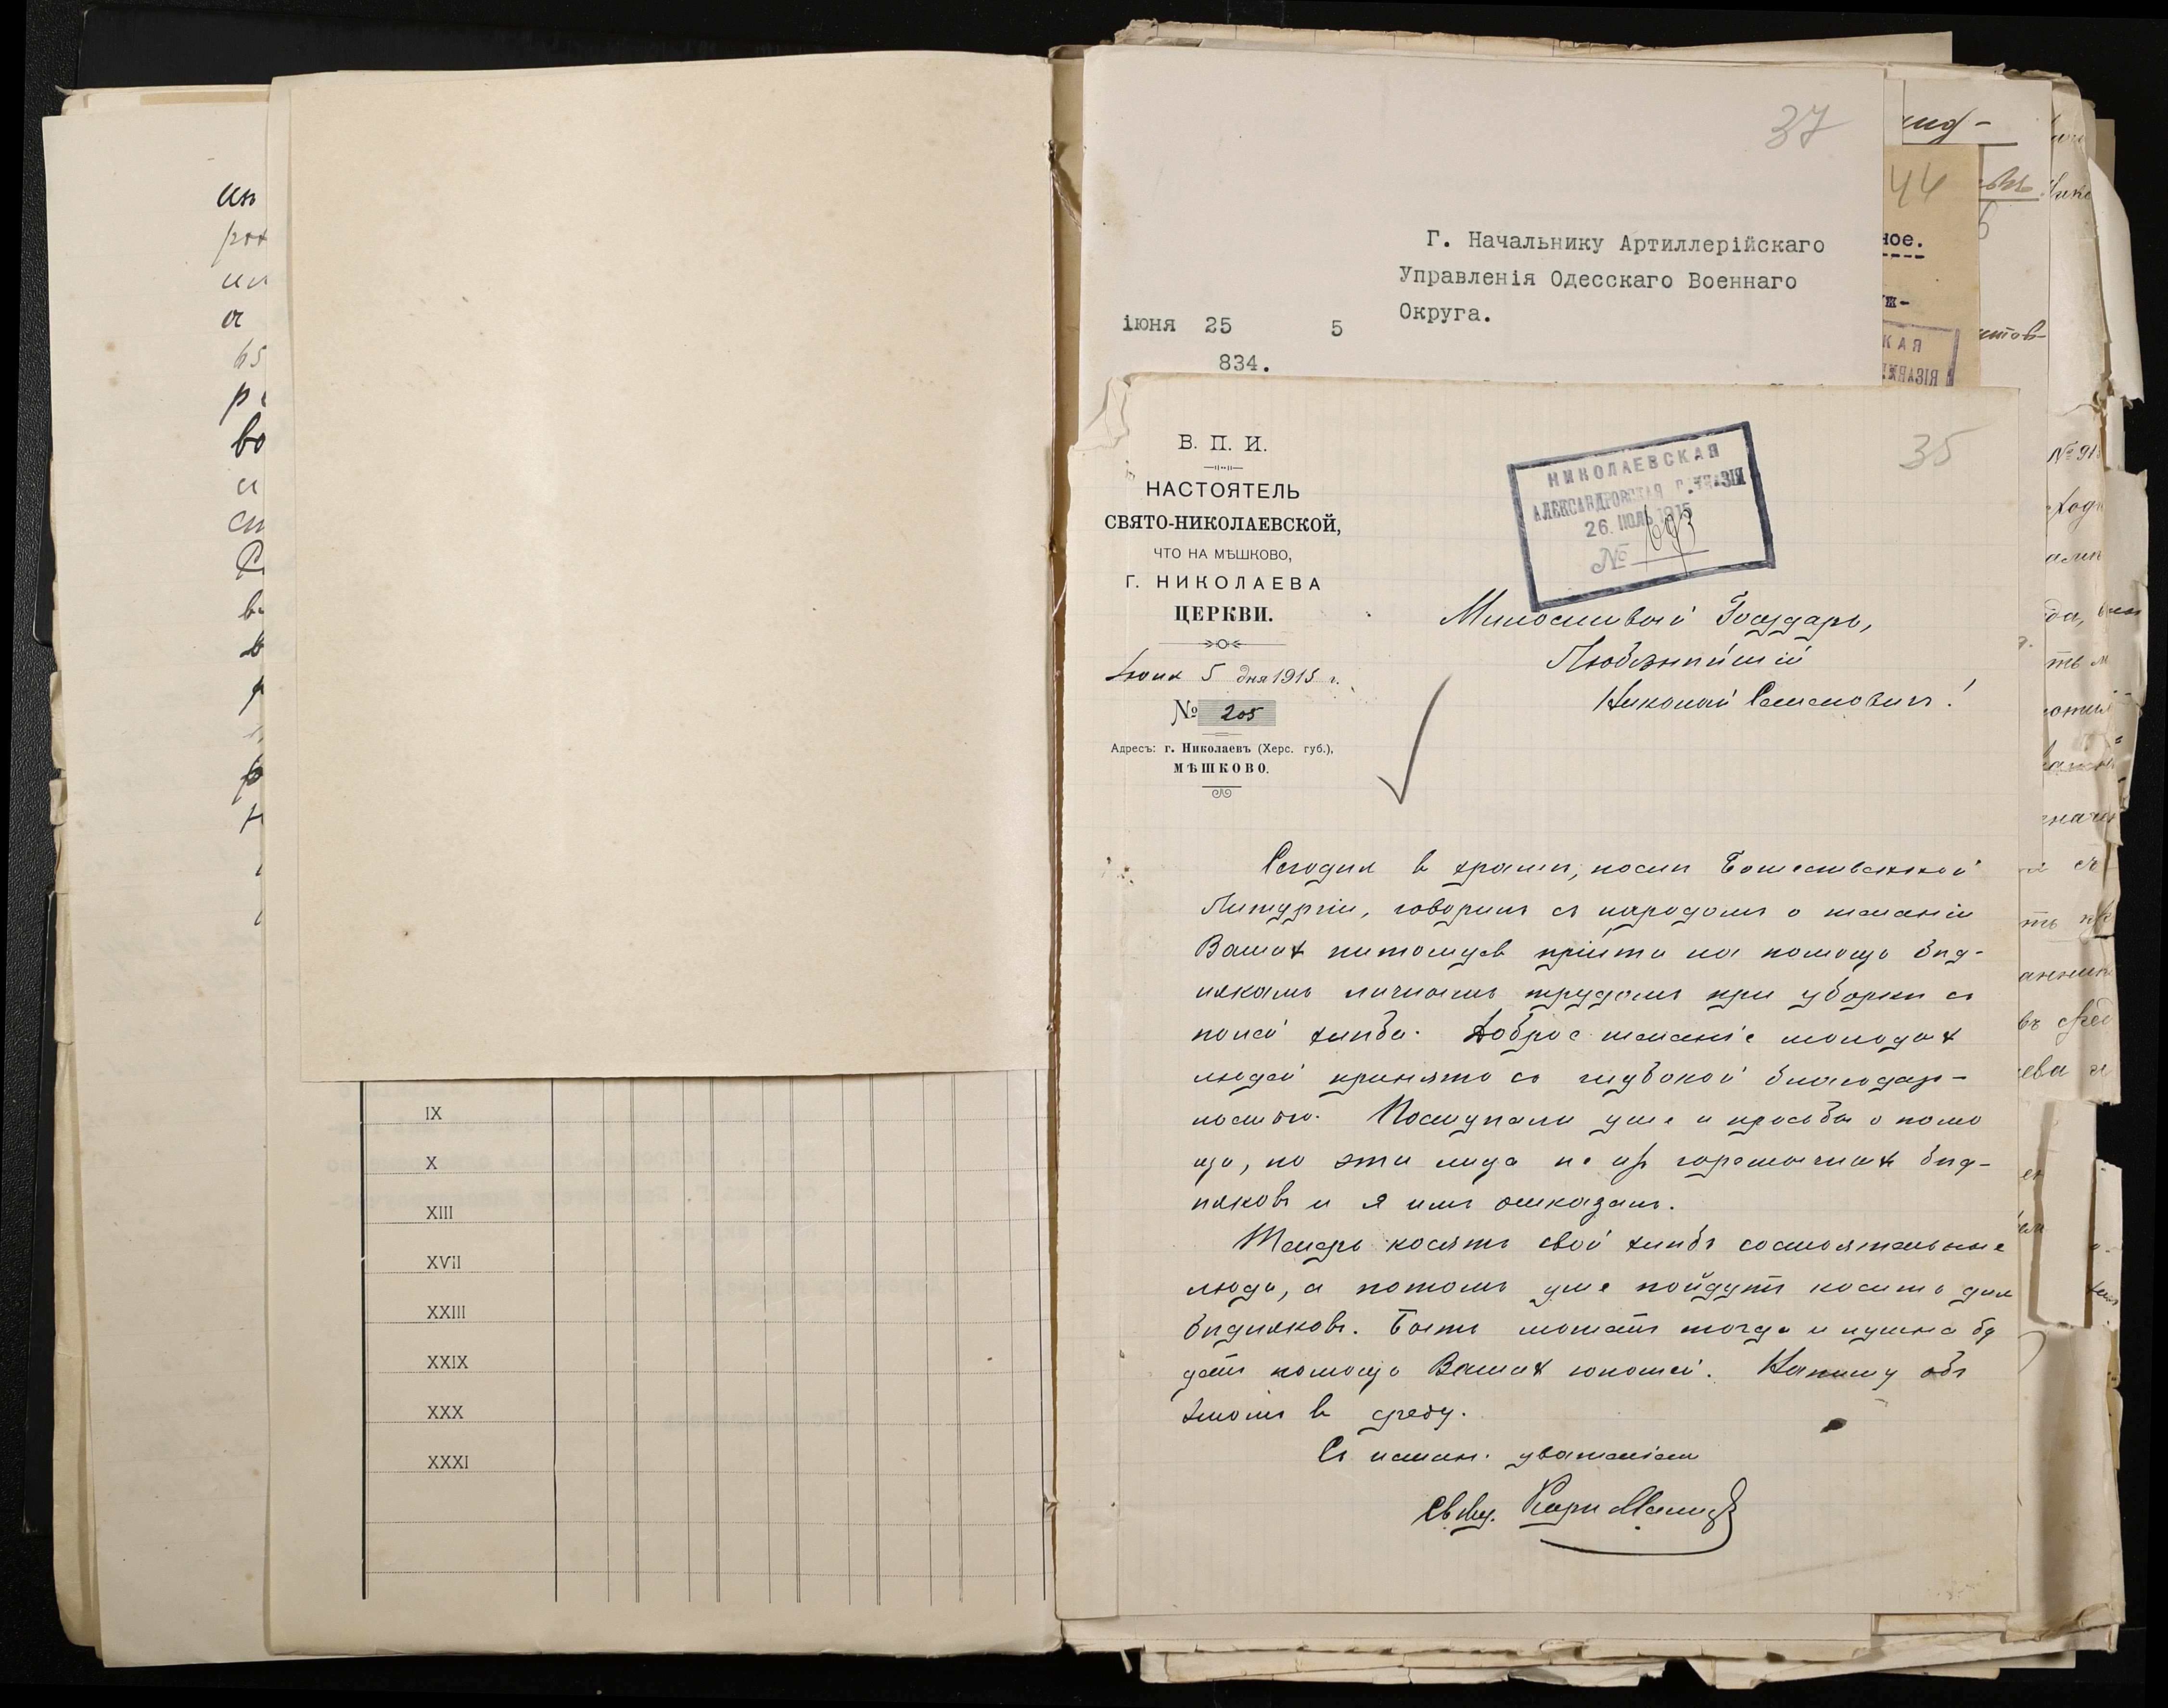 IX
X
XIII
XVII
XXIII
XXIX
XXX
XXXI
37
Г. Начальнику Артиллерійскаго
Управленія Одесскаго Военнаго
Округа.
іюня 25 5
834.
44
ное.
35
В. П. И.
НАСТОЯТЕЛЬ
СВЯТО-НИКОЛАЕВСКОЙ,
ЧТО НА МѢШКОВО,
Г. НИКОЛАЕВА
ЦЕРКВИ.
5 дня 1915 г.
№ 205
Адресъ: г. Николаевъ (Херс. губ.),
МѢШКОВО.
НИКОЛАЕВСКАЯ
АЛЕКСАНДРОВСКАЯ ГИМНАЗІЯ
26. ІЮЛЬ 1915
№ 693
Милостивый Государь,
Любезнѣйшій
Николай Семеновичъ!
Сегодня в храмѣ, послѣ Божественной
Литургіи, говорилъ съ народомъ о желаніи
Вашихъ питомцев прійти на помощь бѣд-
някамъ личнымъ трудомъ при уборкѣ съ
полей хлѣба. Доброе желаніе молодых
людей принято съ глубокой благодар-
ностью. Поступали уже и просьбы о помо
щи, но эти лица не из горемычных бѣд-
няковъ и я имъ отказалъ.
Теперь косятъ свой хлѣбъ состоятельные
люди, а потомъ уже пойдутъ косить для
бѣдняковъ. Быть можетъ тогда и нужна бу
детъ помощь Вашихъ юношей. Напишу объ
этомъ в среду.
Съ истин. уваженіемъ